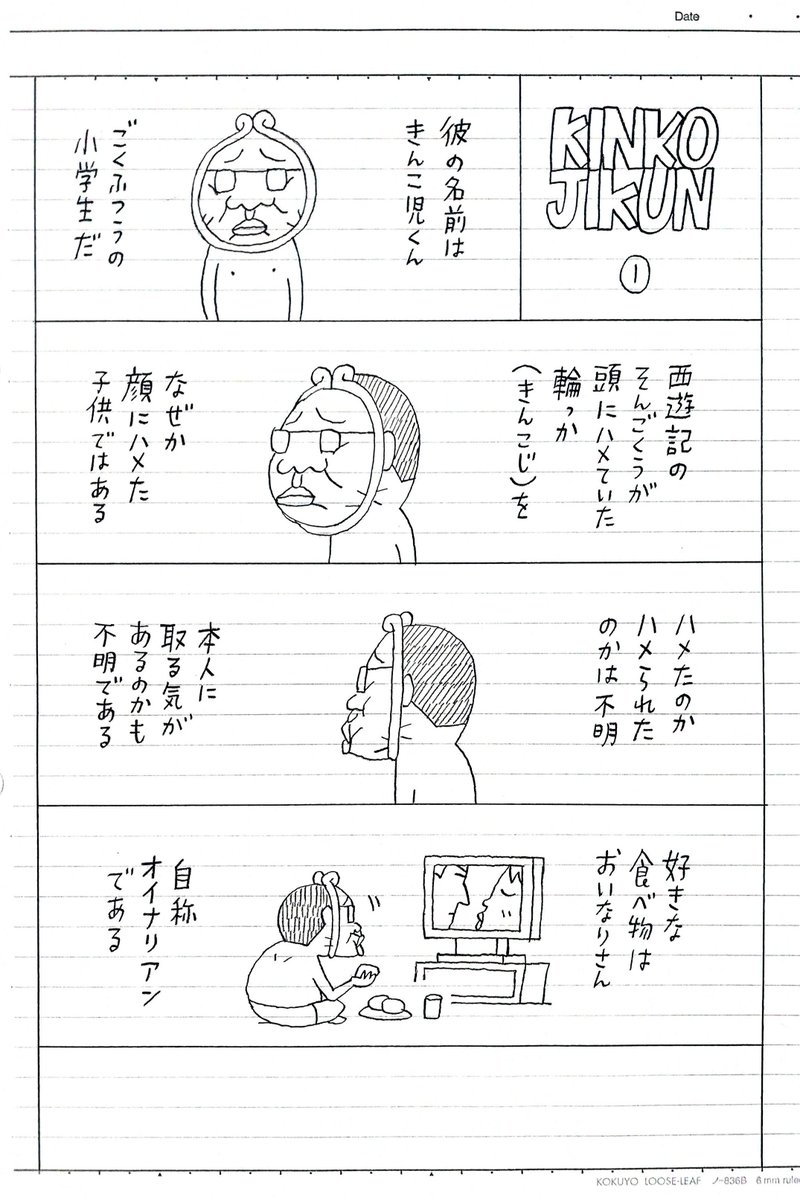 Date
KINKO
JIKUN
①
彼の名前は
きんこ児くん
ごくふつうの
小学生だ
西遊記の
そんごくうが
頭にハメていた
輪っか
(きんこじ)を
なぜか
顔にハメた
子供ではある
ハメたのか
ハメられた
のかは不明
本人に
取る気が
あるのかも
不明である
好きな
食べ物は
おいなりさん
自称
オイナリアン
である
KOKUYO LOOSE-LEAF ノ-836B 6mm rule